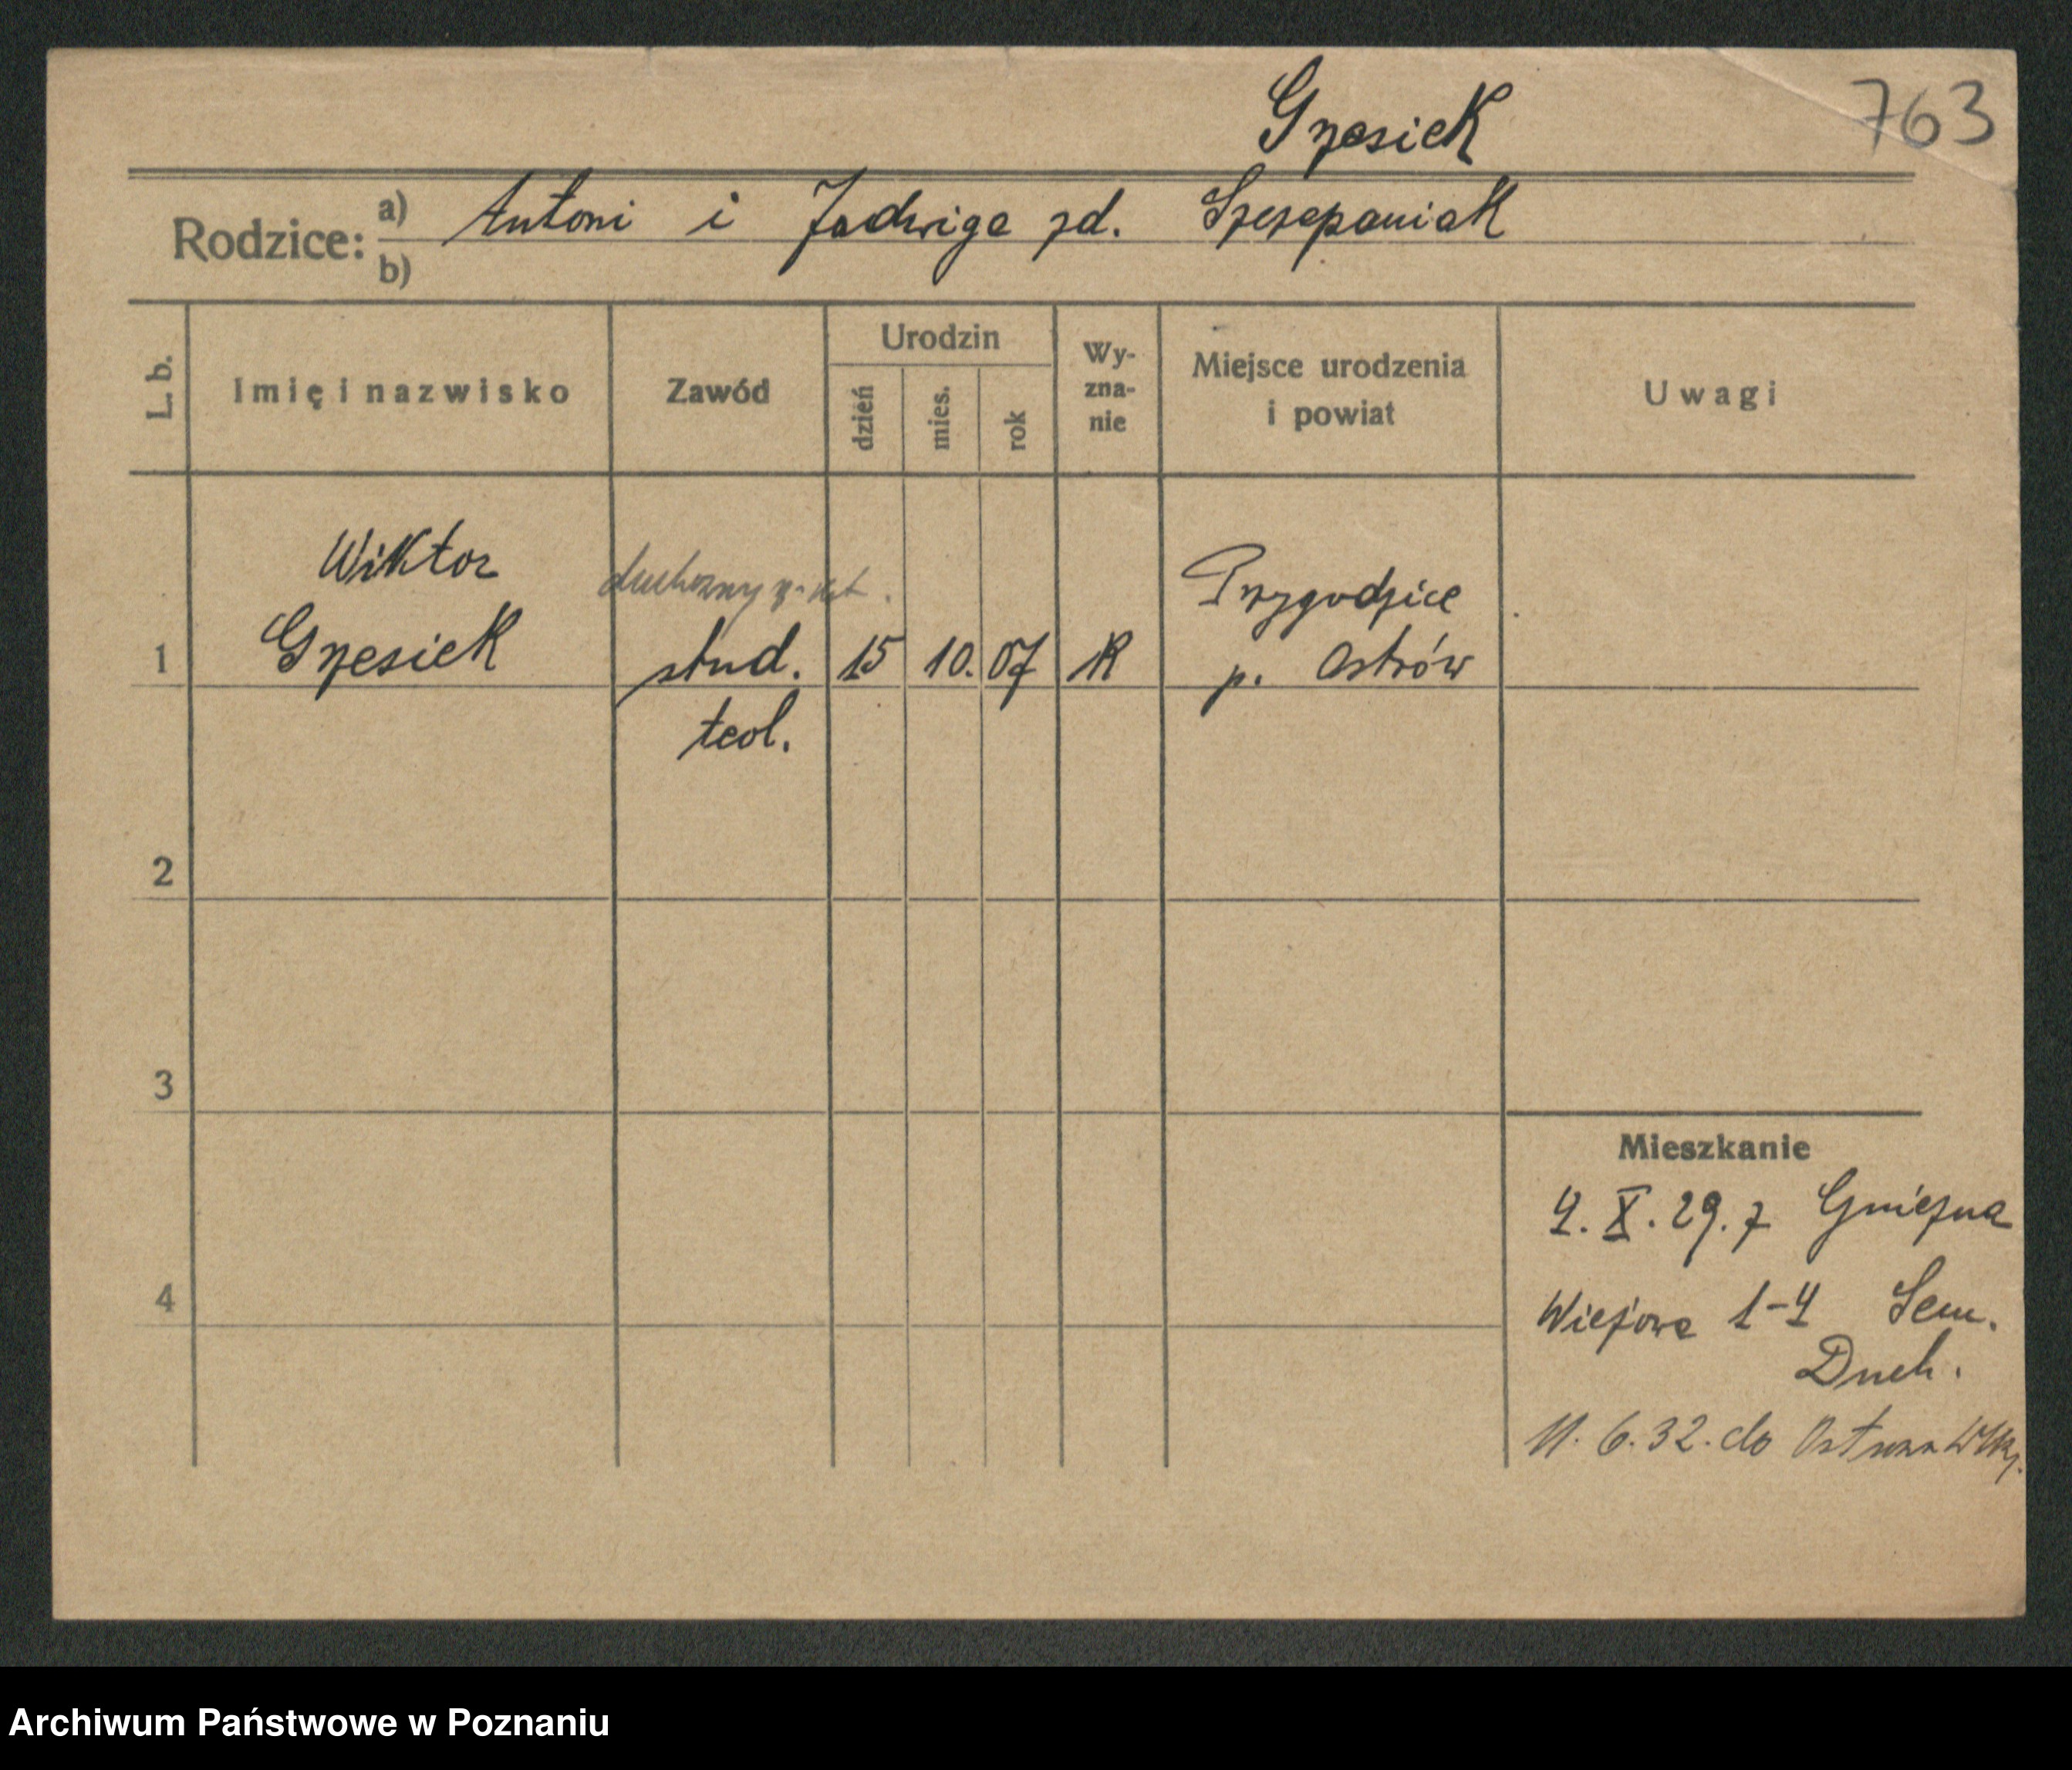 Grzesiek
763
Rodzice: a) Antoni i Jadwiga zd. Szczepaniak
b)
L. b.
Imię i nazwisko
Zawód
Urodzin
dzień
mies.
rok
Wy-
zna-
nie
Miejsce urodzenia
i powiat
Uwagi
Wiktor
duchowny
Przygodzice
1 Grzesiek stud. 15 10. 07 K p. Ostrów
teol.
2
3
Mieszkanie
4. X. 29. z Gniezna
4
Wieżowa 1-4 Sem.
Duch.
11. 6. 32. do Ostrowa Wlkp.
Archiwum Państwowe w Poznaniu